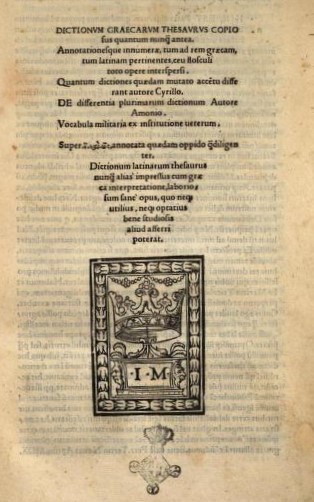 DICTIONVM GRAECARVM THESAVRVS COPIO
sus quantum nunq̃ antea.
Annotationesque innumeræ, tum ad rem græcam,
tum latinam pertinentes, ceu flosculi
toto opere interspersi.
Quantum dictiones quædam mutato accẽtu diffe
rant autore Cyrillo.
DE differentia plurimarum dictionum Autore
Amonio.
Vocabula militaria ex institutione ueterum.
Super annotata quædam oppido q̃diligen
ter.
Dictionum latinarum thesaurus
nunq̃ alias' impressus cum græ
ca interpretatione, laborio,
sum sane' opus, quo neq;
utilius, neq; optatius
bene studiosis
aliud afferri
poterat.
·I·M·